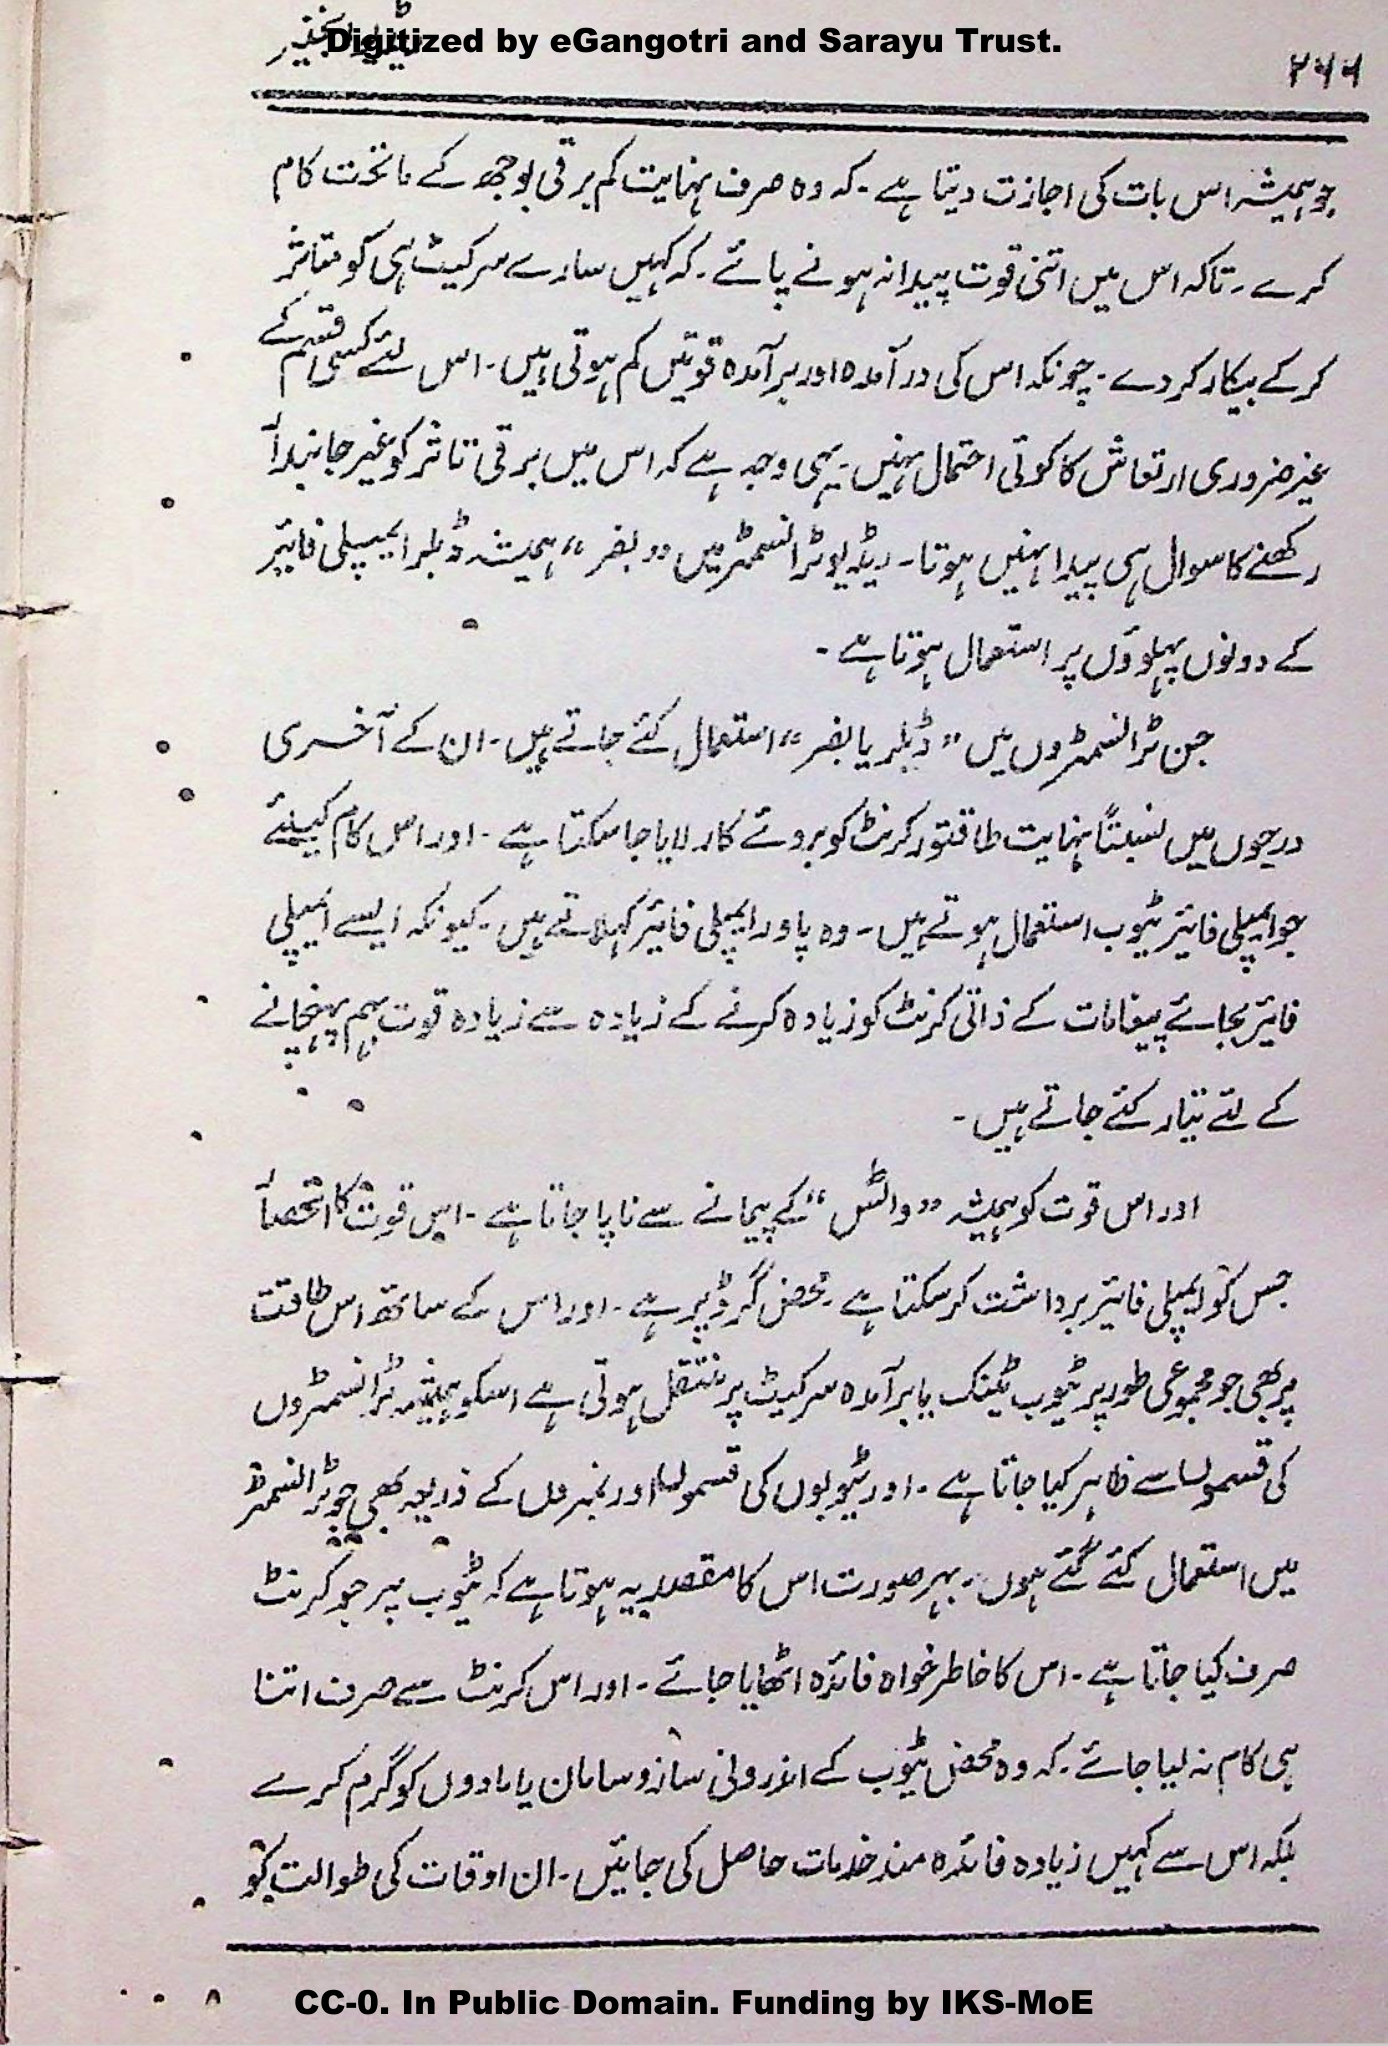 Digitized by eGangotri and Sarayu Trust.
۲۶۶
جو ہمیشہ اس بات کی اجازت دیتا ہے۔ کہ وہ صرف نہایت کم برقی بوجھ کے ماتحت کام
کرے۔ تاکہ اس میں اتنی قوت پیدا نہ ہونے پائے۔ کہ کہیں سارے سرکیٹ ہی کو متاثر
کرکے بیکار کردے۔ چونکہ اس کی درآمدہ اور برآمدہ قوتیں کم ہوتی ہیں۔ اس لئے کسی قسم کے
غیر ضروری ارتعاش کا کوئی احتمال نہیں۔ یہی وجہ ہے کہ اس میں برقی تاثر کو غیر جانبدار
رکھنے کا سوال ہی پیدا نہیں ہوتا۔ ریڈیو ٹرانسمٹر میں "بفر" ہمیشہ ڈبلر ایمپلی فائیر
کے دونوں پہلوؤں پر استعمال ہوتا ہے۔
جن ٹرانسمٹروں میں "ڈبلر یا بفر" استعمال کئے جاتے ہیں۔ ان کے آخری
درجوں میں نسبتاً نہایت طاقتور کرنٹ کو بروئے کار لایا جاسکتا ہے۔ اور اس کام کیلئے
جو ایمپلی فائیر ٹیوب استعمال ہوتے ہیں۔ وہ پاور ایمپلی فائیر کہلاتے ہیں۔ کیونکہ ایسے ایمپلی
فائیر بجائے پیغامات کے ذاتی کرنٹ کو زیادہ کرنے کے زیادہ سے زیادہ قوت بہم پہنچانے
کے لئے تیار کئے جاتے ہیں۔
اور اس قوت کو ہمیشہ "واٹس" کے پیمانے سے ناپا جاتا ہے۔ اس قوت کا انحصار
جس کو ایمپلی فائیر برداشت کرسکتا ہے۔ محض گرڈ پر ہے۔ اور اس کے ساتھ اس طاقت
پر بھی جو مجموعی طور پر ٹیوب ٹینک یا برآمدہ سرکیٹ پر منتقل ہوتی ہے اسکو ہمیشہ ٹرانسمٹروں
کی قسموں سے ظاہر کیا جاتا ہے۔ اور ٹیوبوں کی قسموں اور نمبروں کے ذریعہ بھی جو ٹرانسمٹر
میں استعمال کئے گئے ہوں۔ بہر صورت اس کا مقصد یہ ہوتا ہے کہ ٹیوب پر جو کرنٹ
صرف کیا جاتا ہے۔ اس کا خاطر خواہ فائدہ اٹھایا جائے۔ اور اس کرنٹ سے صرف اتنا
ہی کام نہ لیا جائے۔ کہ وہ محض ٹیوب کے اندرونی سازوسامان یا مادوں کو گرم کرے
بلکہ اس سے کہیں زیادہ فائدہ مند خدمات حاصل کی جائیں۔ ان اوقات کی طوالت کو
CC-0. In Public Domain. Funding by IKS-MoE